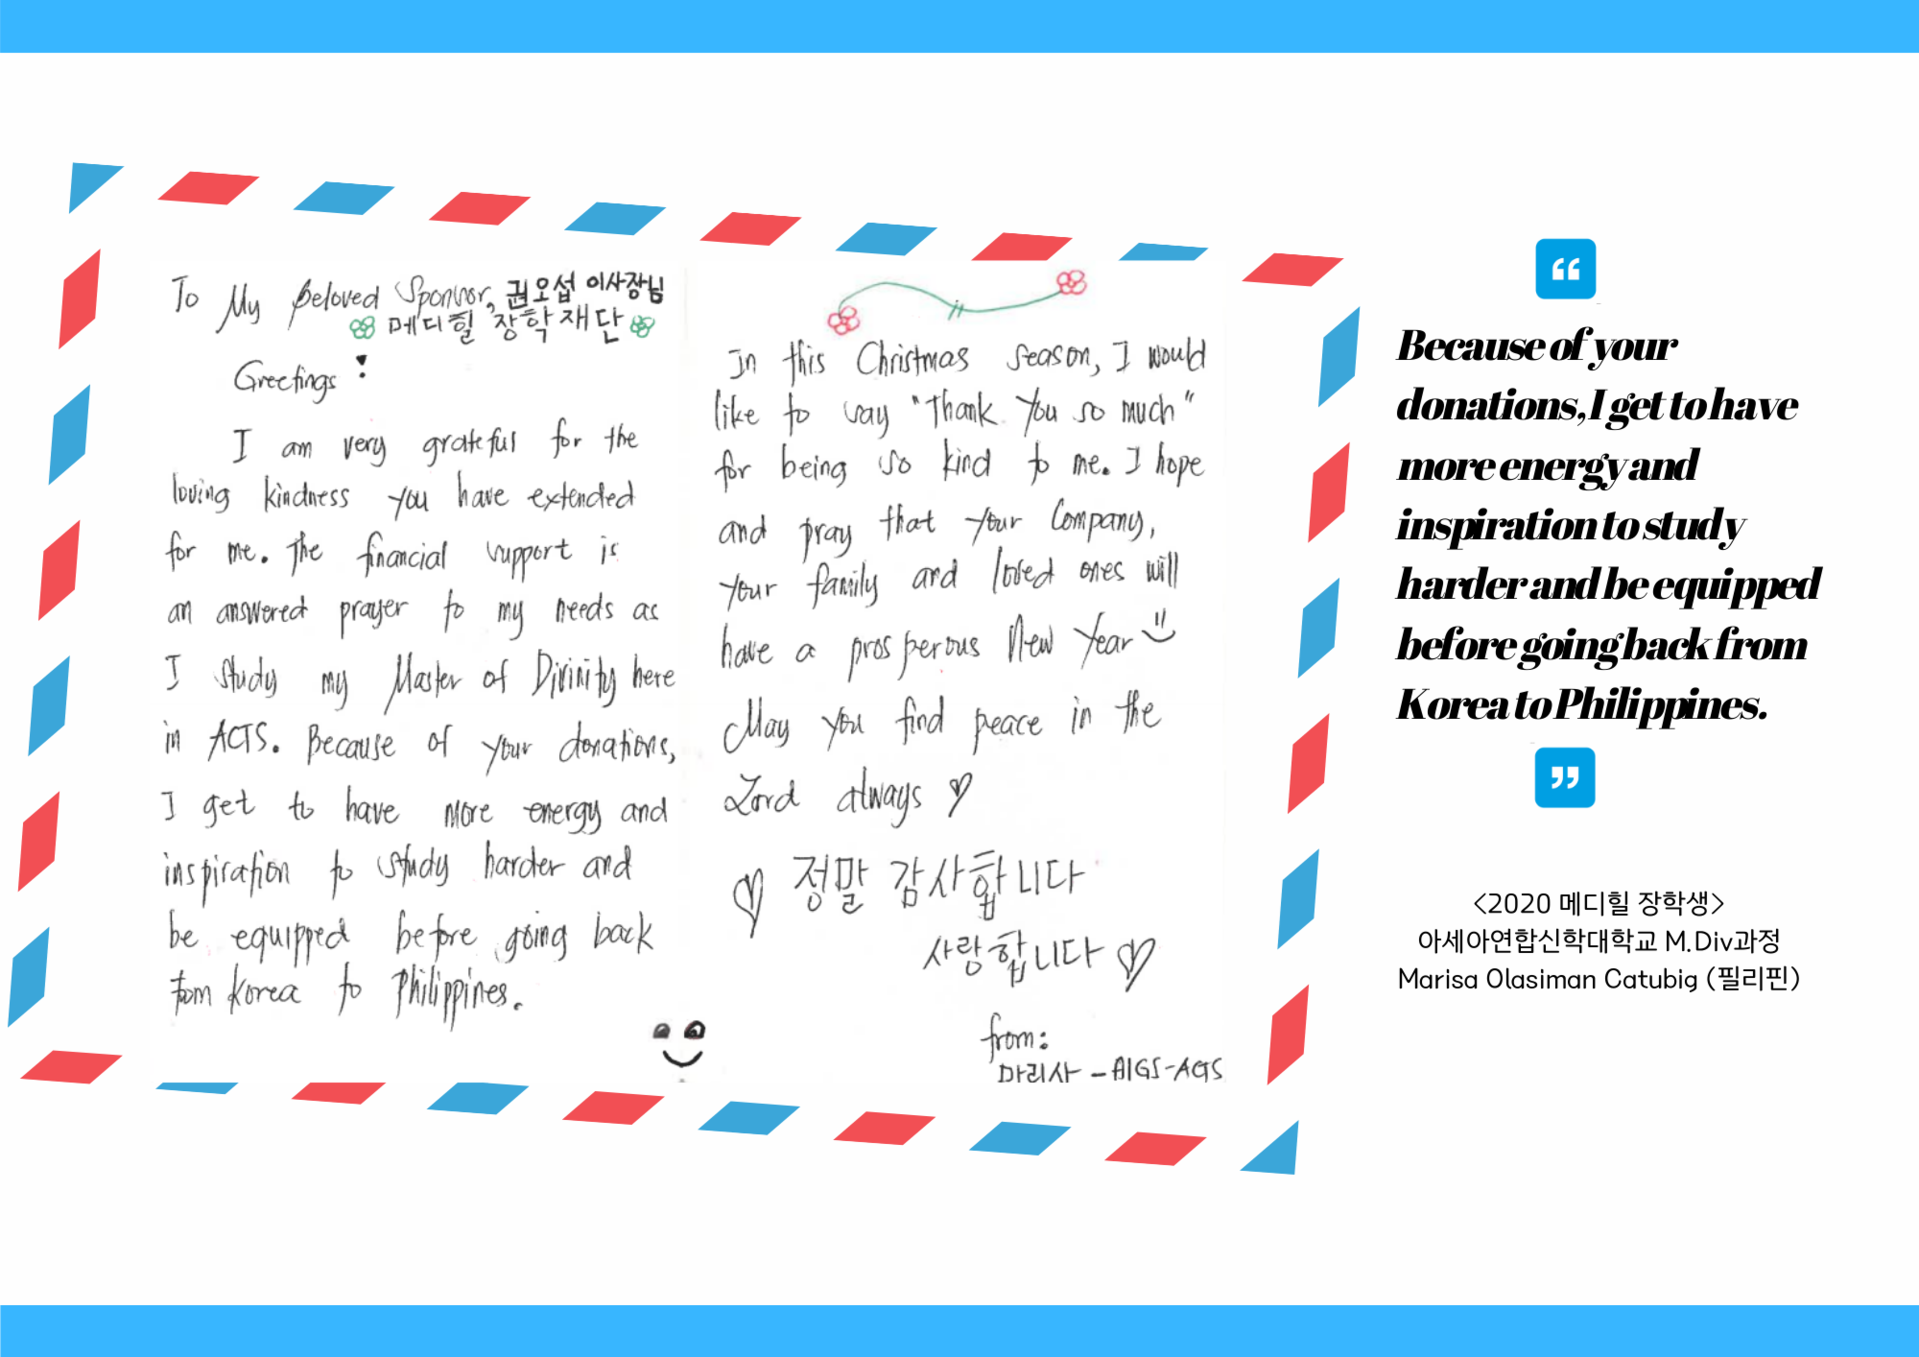 To My Beloved Sponsor, 권오섭 이사장님
메디힐 장학재단
Greetings!
I am very grateful for the
loving kindness you have extended
for me. The financial support is
an answered prayer to my needs as
I study my Master of Divinity here
in ACTS. Because of your donations,
I get to have more energy and
inspiration to study harder and
be equipped before going back
from Korea to Philippines.
In this Christmas season, I would
like to say "Thank You so much"
for being so kind to me. I hope
and pray that your Company,
your family and loved ones will
have a prosperous New Year
May you find peace in the
Lord always
정말 감사합니다
사랑합니다
from:
마리사 - AIGS-ACTS
“
Because of your
donations, I get to have
more energy and
inspiration to study
harder and be equipped
before going back from
Korea to Philippines.
”
<2020 메디힐 장학생>
아세아연합신학대학교 M.Div과정
Marisa Olasiman Catubig (필리핀)